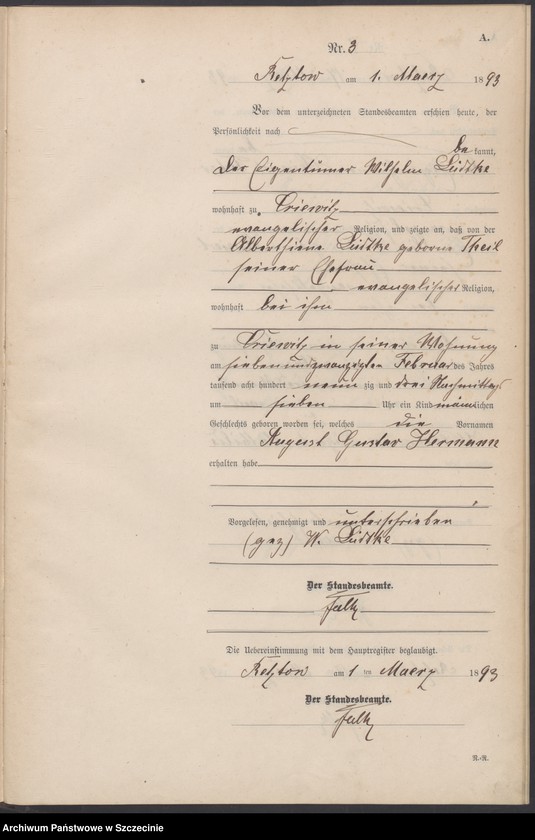 A.
Nr. 3
Retztow am 1. Maerz 1893
Vor dem unterzeichneten Standesbeamten erschien heute, der
Persönlichkeit nach
be kannt,
der Eigentümer Wilhelm Lüdtke
wohnhaft zu Criewitz
evangelischer Religion, und zeigte an, daß von der
Alberthiene Lüdtke geborne Theil
seiner Ehefrau
evangelischer Religion,
wohnhaft bei ihm
zu Criewitz in seiner Wohnung
am siebenundzwanzigten Februar des Jahres
tausend acht hundert neun zig und drei Nachmittags
um sieben Uhr ein Kind männlichen
Geschlechts geboren worden sei, welches die Vornamen
August Gustav Hermann
erhalten habe
Vorgelesen, genehmigt und unterschrieben
(gez) W. Lüdtke
Der Standesbeamte.
Falk
Die Uebereinstimmung mit dem Hauptregister beglaubigt.
Retztow am 1 ten Maerz 1893
Der Standesbeamte.
Falk
R.-R.
Archiwum Państwowe w Szczecinie